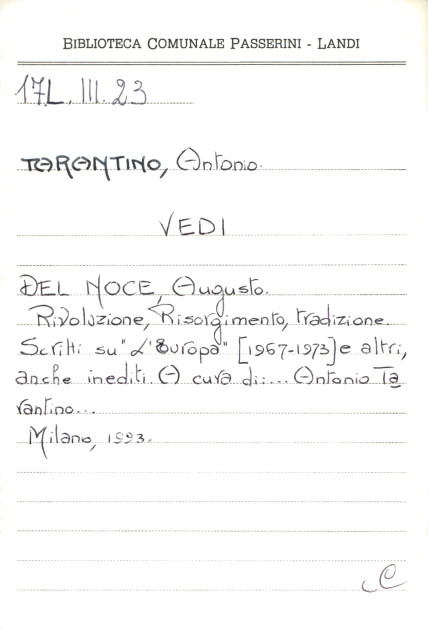 BIBLIOTECA COMUNALE PASSERINI - LANDI
17L.III.23
TARANTINO, Antonio.
VEDI
DEL NOCE, Augusto.
Rivoluzione, Risorgimento, tradizione.
Scritti su "L'Europa" [1967-1973] e altri,
anche inediti. A cura di:... Antonio Ta
rantino...
Milano, 1993.
C